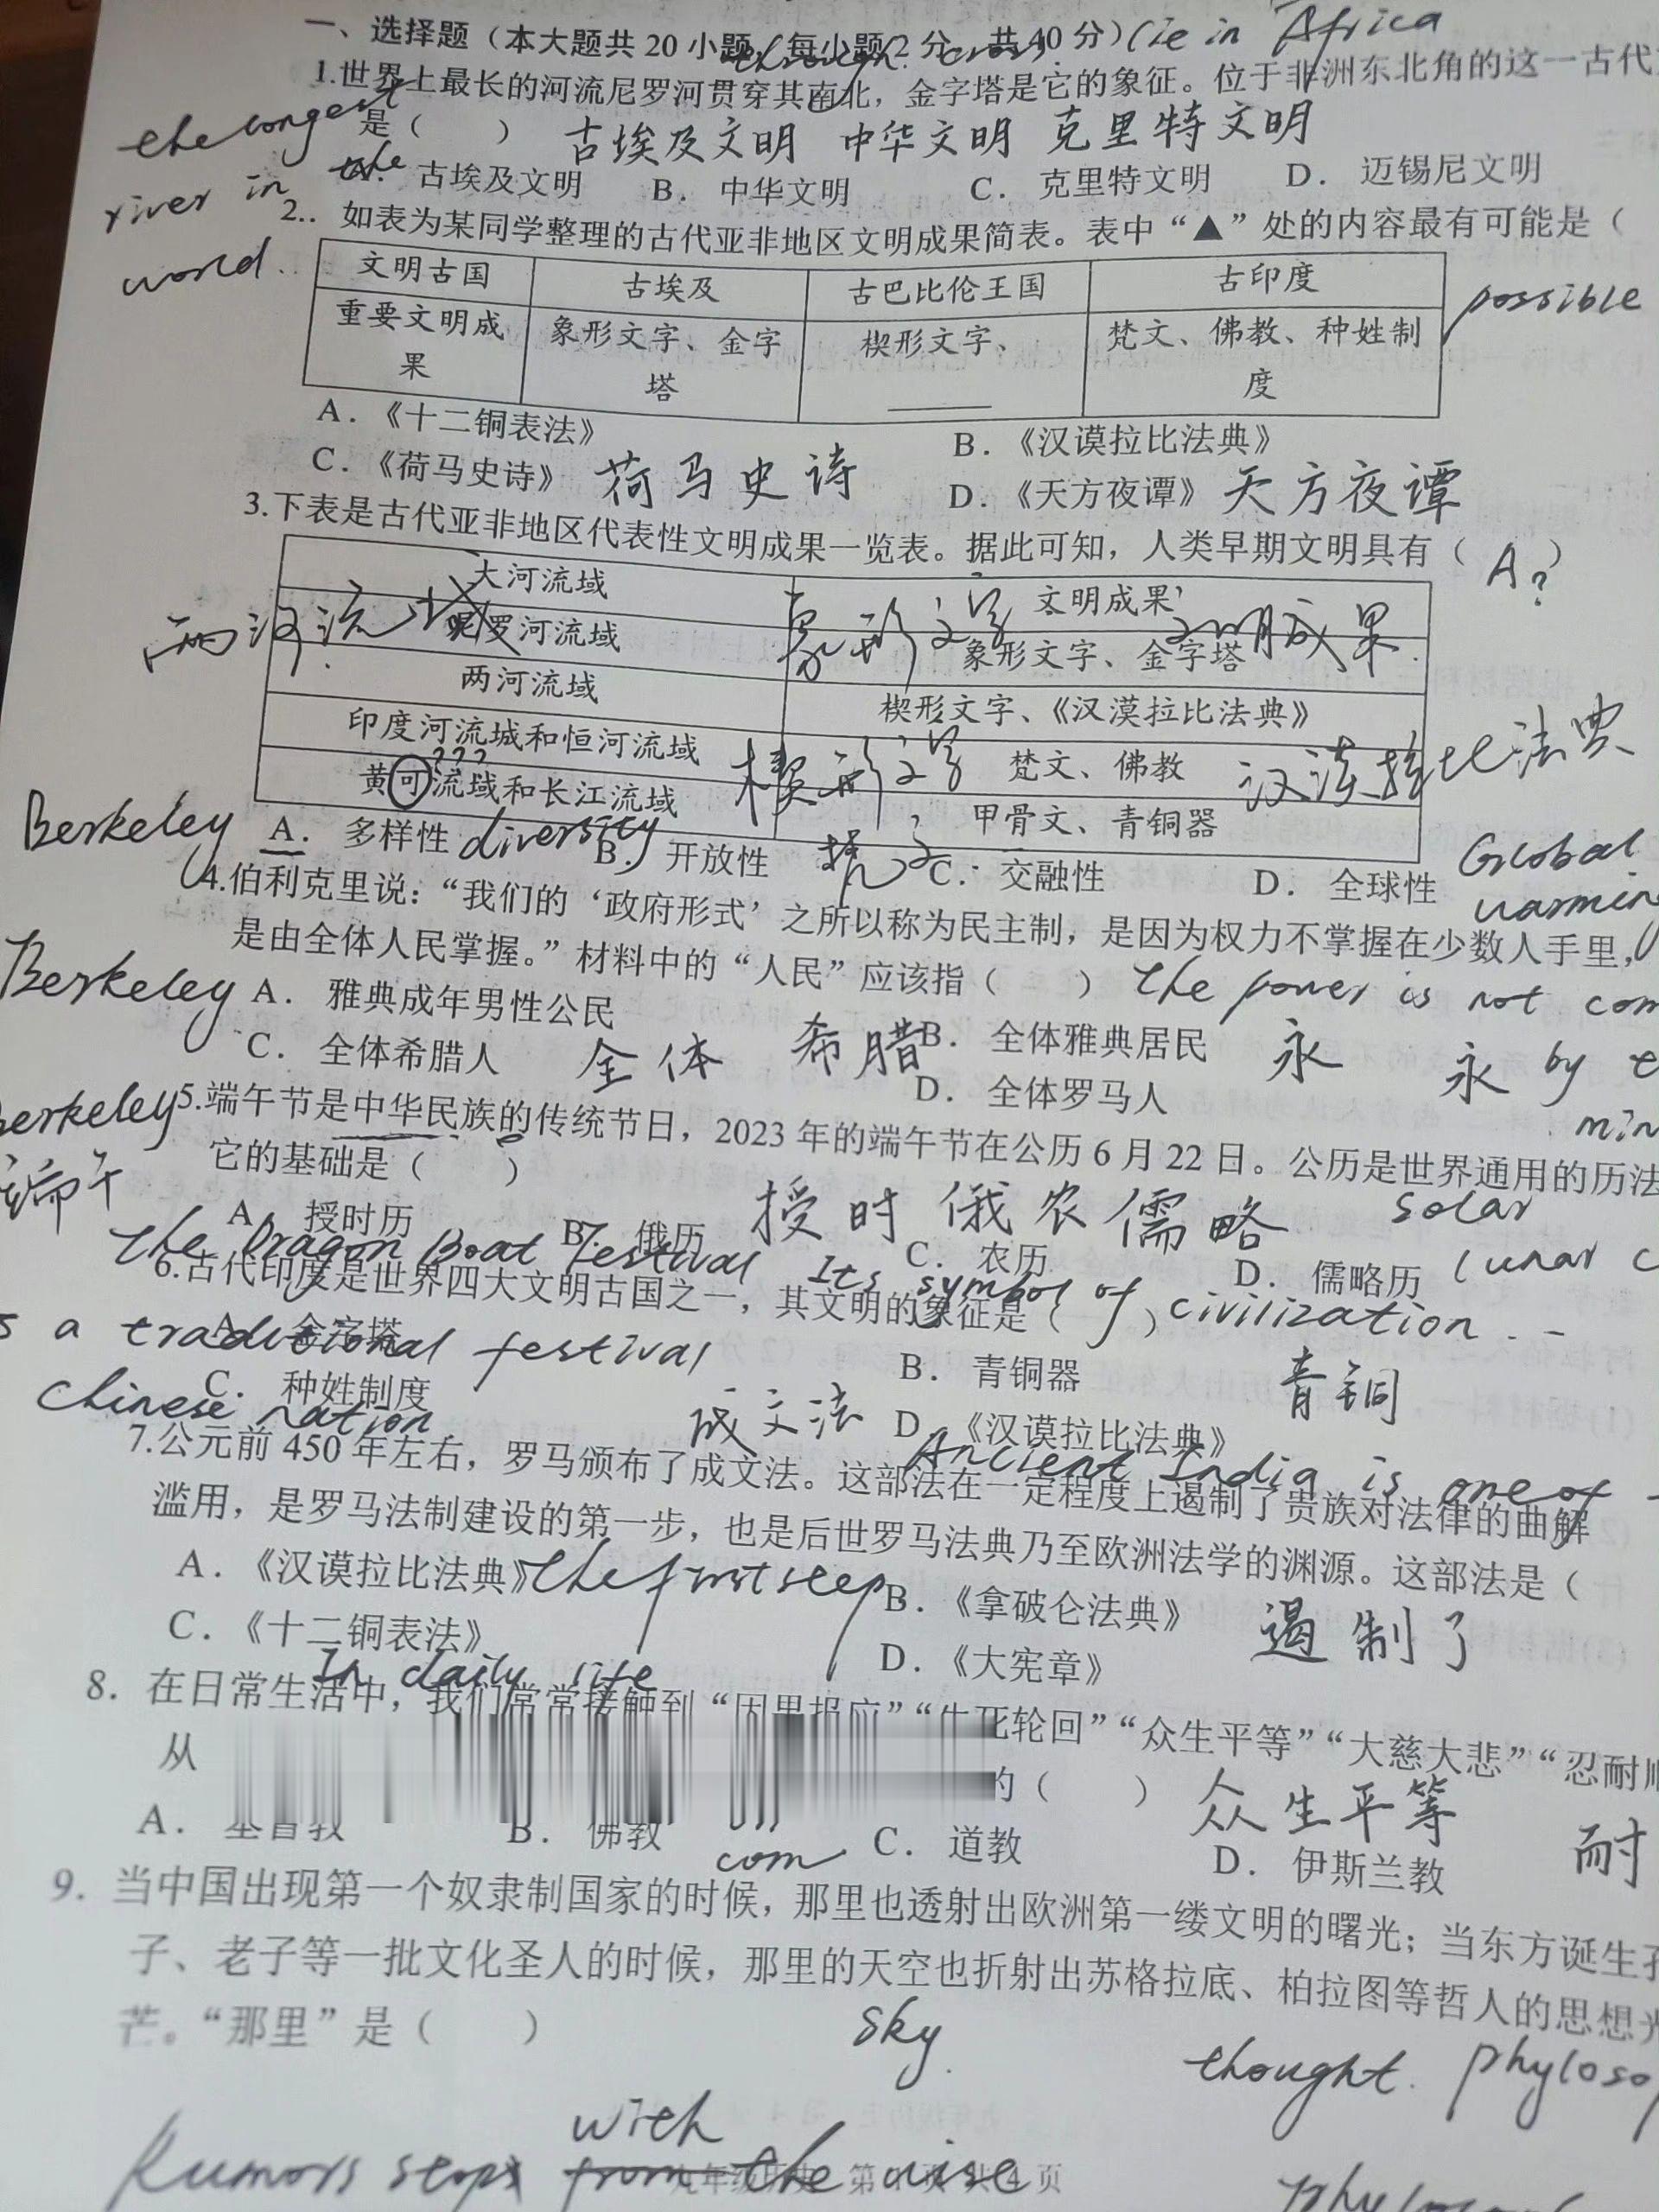 一、选择题（本大题共 20 小题，每小题 2 分，共 40 分）lie in Africa
through. cross.
1.世界上最长的河流尼罗河贯穿其南北，金字塔是它的象征。位于非洲东北角的这一古代
the longest
是（  ） 古埃及文明 中华文明 克里特文明
the
古埃及文明 B. 中华文明 C. 克里特文明 D. 迈锡尼文明
river in
2.. 如表为某同学整理的古代亚非地区文明成果简表。表中“▲”处的内容最有可能是（
world..
文明古国 古埃及 古巴比伦王国 古印度
possible
重要文明成 象形文字、金字 楔形文字、 梵文、佛教、种姓制
果 塔 度
A.《十二铜表法》 B.《汉谟拉比法典》
C.《荷马史诗》 荷马史诗 D.《天方夜谭》 天方夜谭
3.下表是古代亚非地区代表性文明成果一览表。据此可知，人类早期文明具有（ A? ）
大河流域 文明成果
两河流域 象形文字 文明成果
尼罗河流域 象形文字、金字塔
两河流域 楔形文字、《汉漠拉比法典》
印度河流城和恒河流域 梵文、佛教
??? 楔形文字 汉谟拉比法典
黄可流域和长江流域 甲骨文、青铜器
Berkeley A. 多样性 diversity B. 开放性 C. 交融性 D. 全球性 Global
4.伯利克里说：“我们的‘政府形式’之所以称为民主制，是因为权力不掌握在少数人手里，
是由全体人民掌握。”材料中的“人民”应该指（  ） the power is not
Berkeley A. 雅典成年男性公民 B. 全体雅典居民 永 永 by
C. 全体希腊人 全体 希腊 D. 全体罗马人
Berkeley 5.端午节是中华民族的传统节日，2023 年的端午节在公历 6 月 22 日。公历是世界通用的历法
端午 它的基础是（  ）
授时 俄农儒略 solar
A. 授时历 B. 俄历 C. 农历 D. 儒略历 lunar
the Dragon Boat Festival Its symbol of civilization..-
6.古代印度是世界四大文明古国之一，其文明的象征是（  ）
a traditional festival
A. 金字塔 B. 青铜器 青铜
Chinese nation
C. 种姓制度 成文法 D.《汉谟拉比法典》
Ancient India is one of
7.公元前 450 年左右，罗马颁布了成文法。这部法在一定程度上遏制了贵族对法律的曲解
滥用，是罗马法制建设的第一步，也是后世罗马法典乃至欧洲法学的渊源。这部法是（
A.《汉谟拉比法典》the first step B.《拿破仑法典》
C.《十二铜表法》 D.《大宪章》 遏制了
In daily life
8. 在日常生活中，我们常常接触到“因果报应”“生死轮回”“众生平等”“大慈大悲”“忍耐
从 的（  ） 众生平等 耐
A. 基督教 B. 佛教 com C. 道教 D. 伊斯兰教
9. 当中国出现第一个奴隶制国家的时候，那里也透射出欧洲第一缕文明的曙光；当东方诞生孔
子、老子等一批文化圣人的时候，那里的天空也折射出苏格拉底、柏拉图等哲人的思想光
芒。“那里”是（  ） sky
thought.
with
Rumors stops from the wise
九年级历史 第 1 页 共 4 页